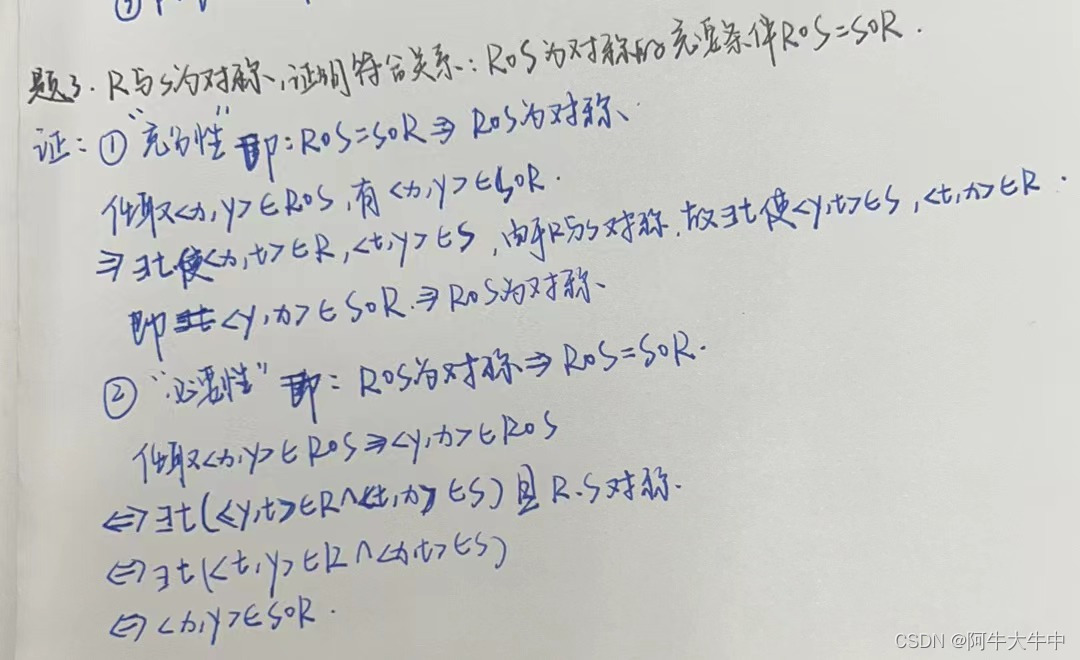 题3. R与S为对称,证明符合关系:R∘S为对称的充要条件R∘S=S∘R.
证:①"充分性"即:R∘S=S∘R⇒R∘S为对称、
任取<x,y>∈R∘S,有<x,y>∈S∘R.
⇒∃t使<x,t>∈R,<t,y>∈S,由于R与S对称,故∃t使<y,t>∈S,<t,x>∈R.
即<y,x>∈S∘R.⇒R∘S为对称、
②"必要性"即:R∘S为对称⇒R∘S=S∘R.
任取<x,y>∈R∘S⇒<y,x>∈R∘S
⇔∃t(<y,t>∈R∧<t,x>∈S)且R.S对称.
⇔∃t(<t,y>∈R∧<x,t>∈S)
⇔<x,y>∈S∘R.
CSDN @阿牛大牛中